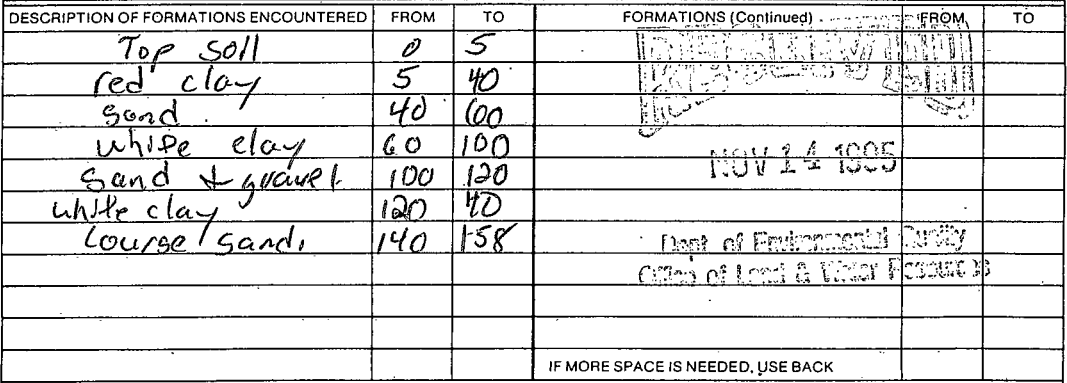 DESCRIPTION OF FORMATIONS ENCOUNTERED FROM TO FORMATIONS (Continued) FROM TO
Top Soll 0 5
red clay 5 40
Sand 40 60
white clay 60 100
Sand + gravel 100 120
white clay 120 40
Course sand. 140 158
RECEIVED
NOV 14 1995
Dept of Environmental Quality
Office of Land & Water Resources
IF MORE SPACE IS NEEDED, USE BACK